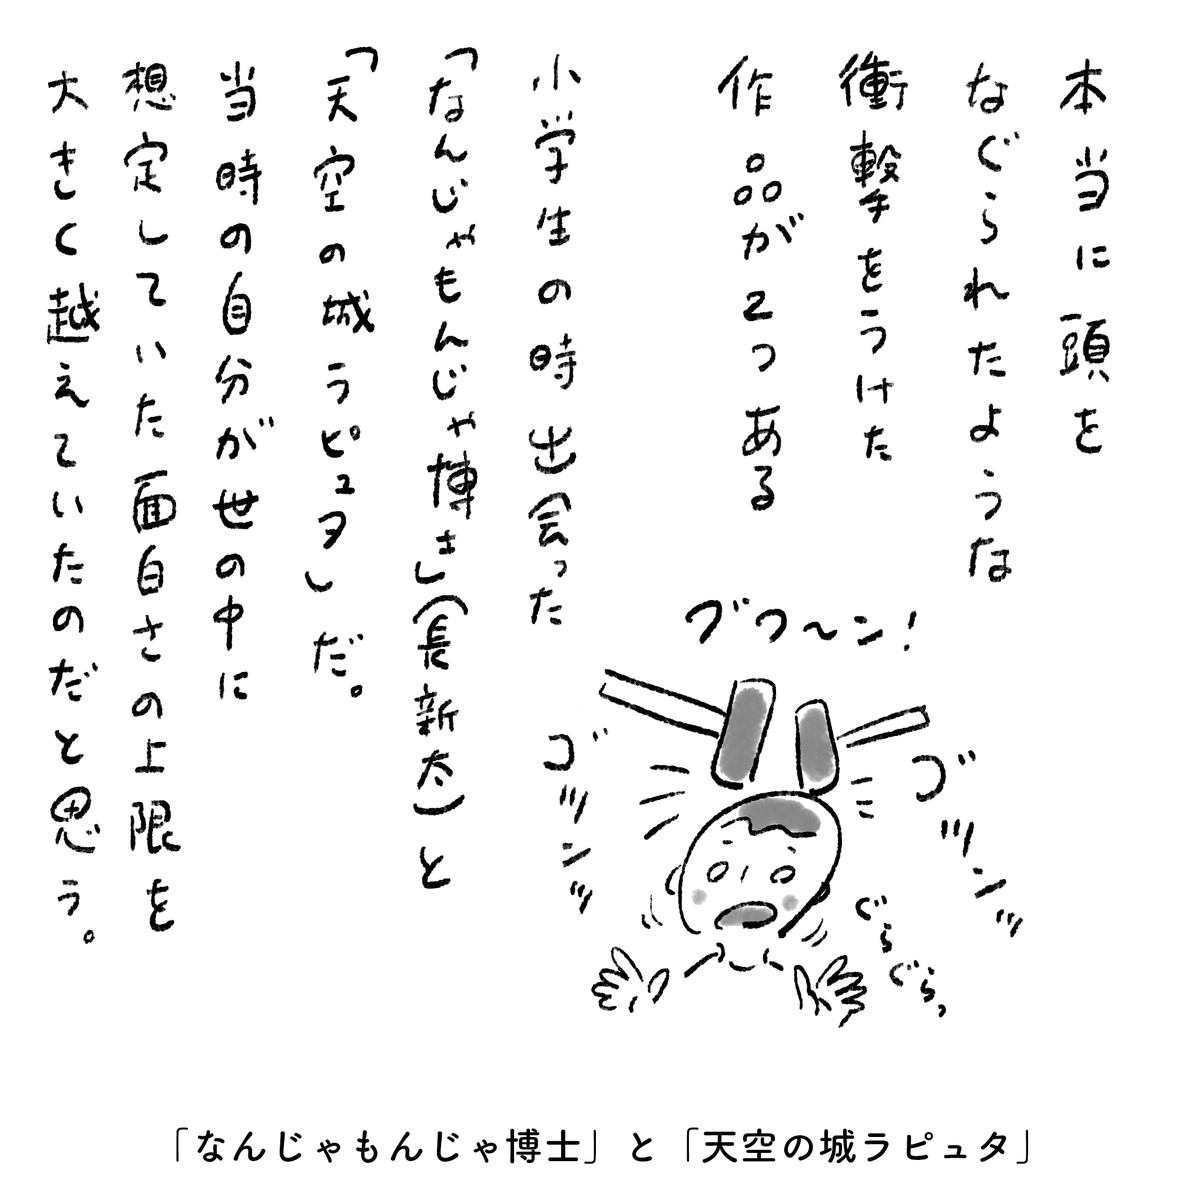 本当に頭を
なぐられたような
衝撃をうけた
作品が2つある
小学生の時出会った
「なんじゃもんじゃ博士」(長新太)と
「天空の城ラピュタ」だ。
当時の自分が世の中に
想定していた面白さの上限を
大きく越えていたのだと思う。
ブワ〜ン!
ゴツンッ
ゴツンッ
ぐらぐらっ
「なんじゃもんじゃ博士」と「天空の城ラピュタ」